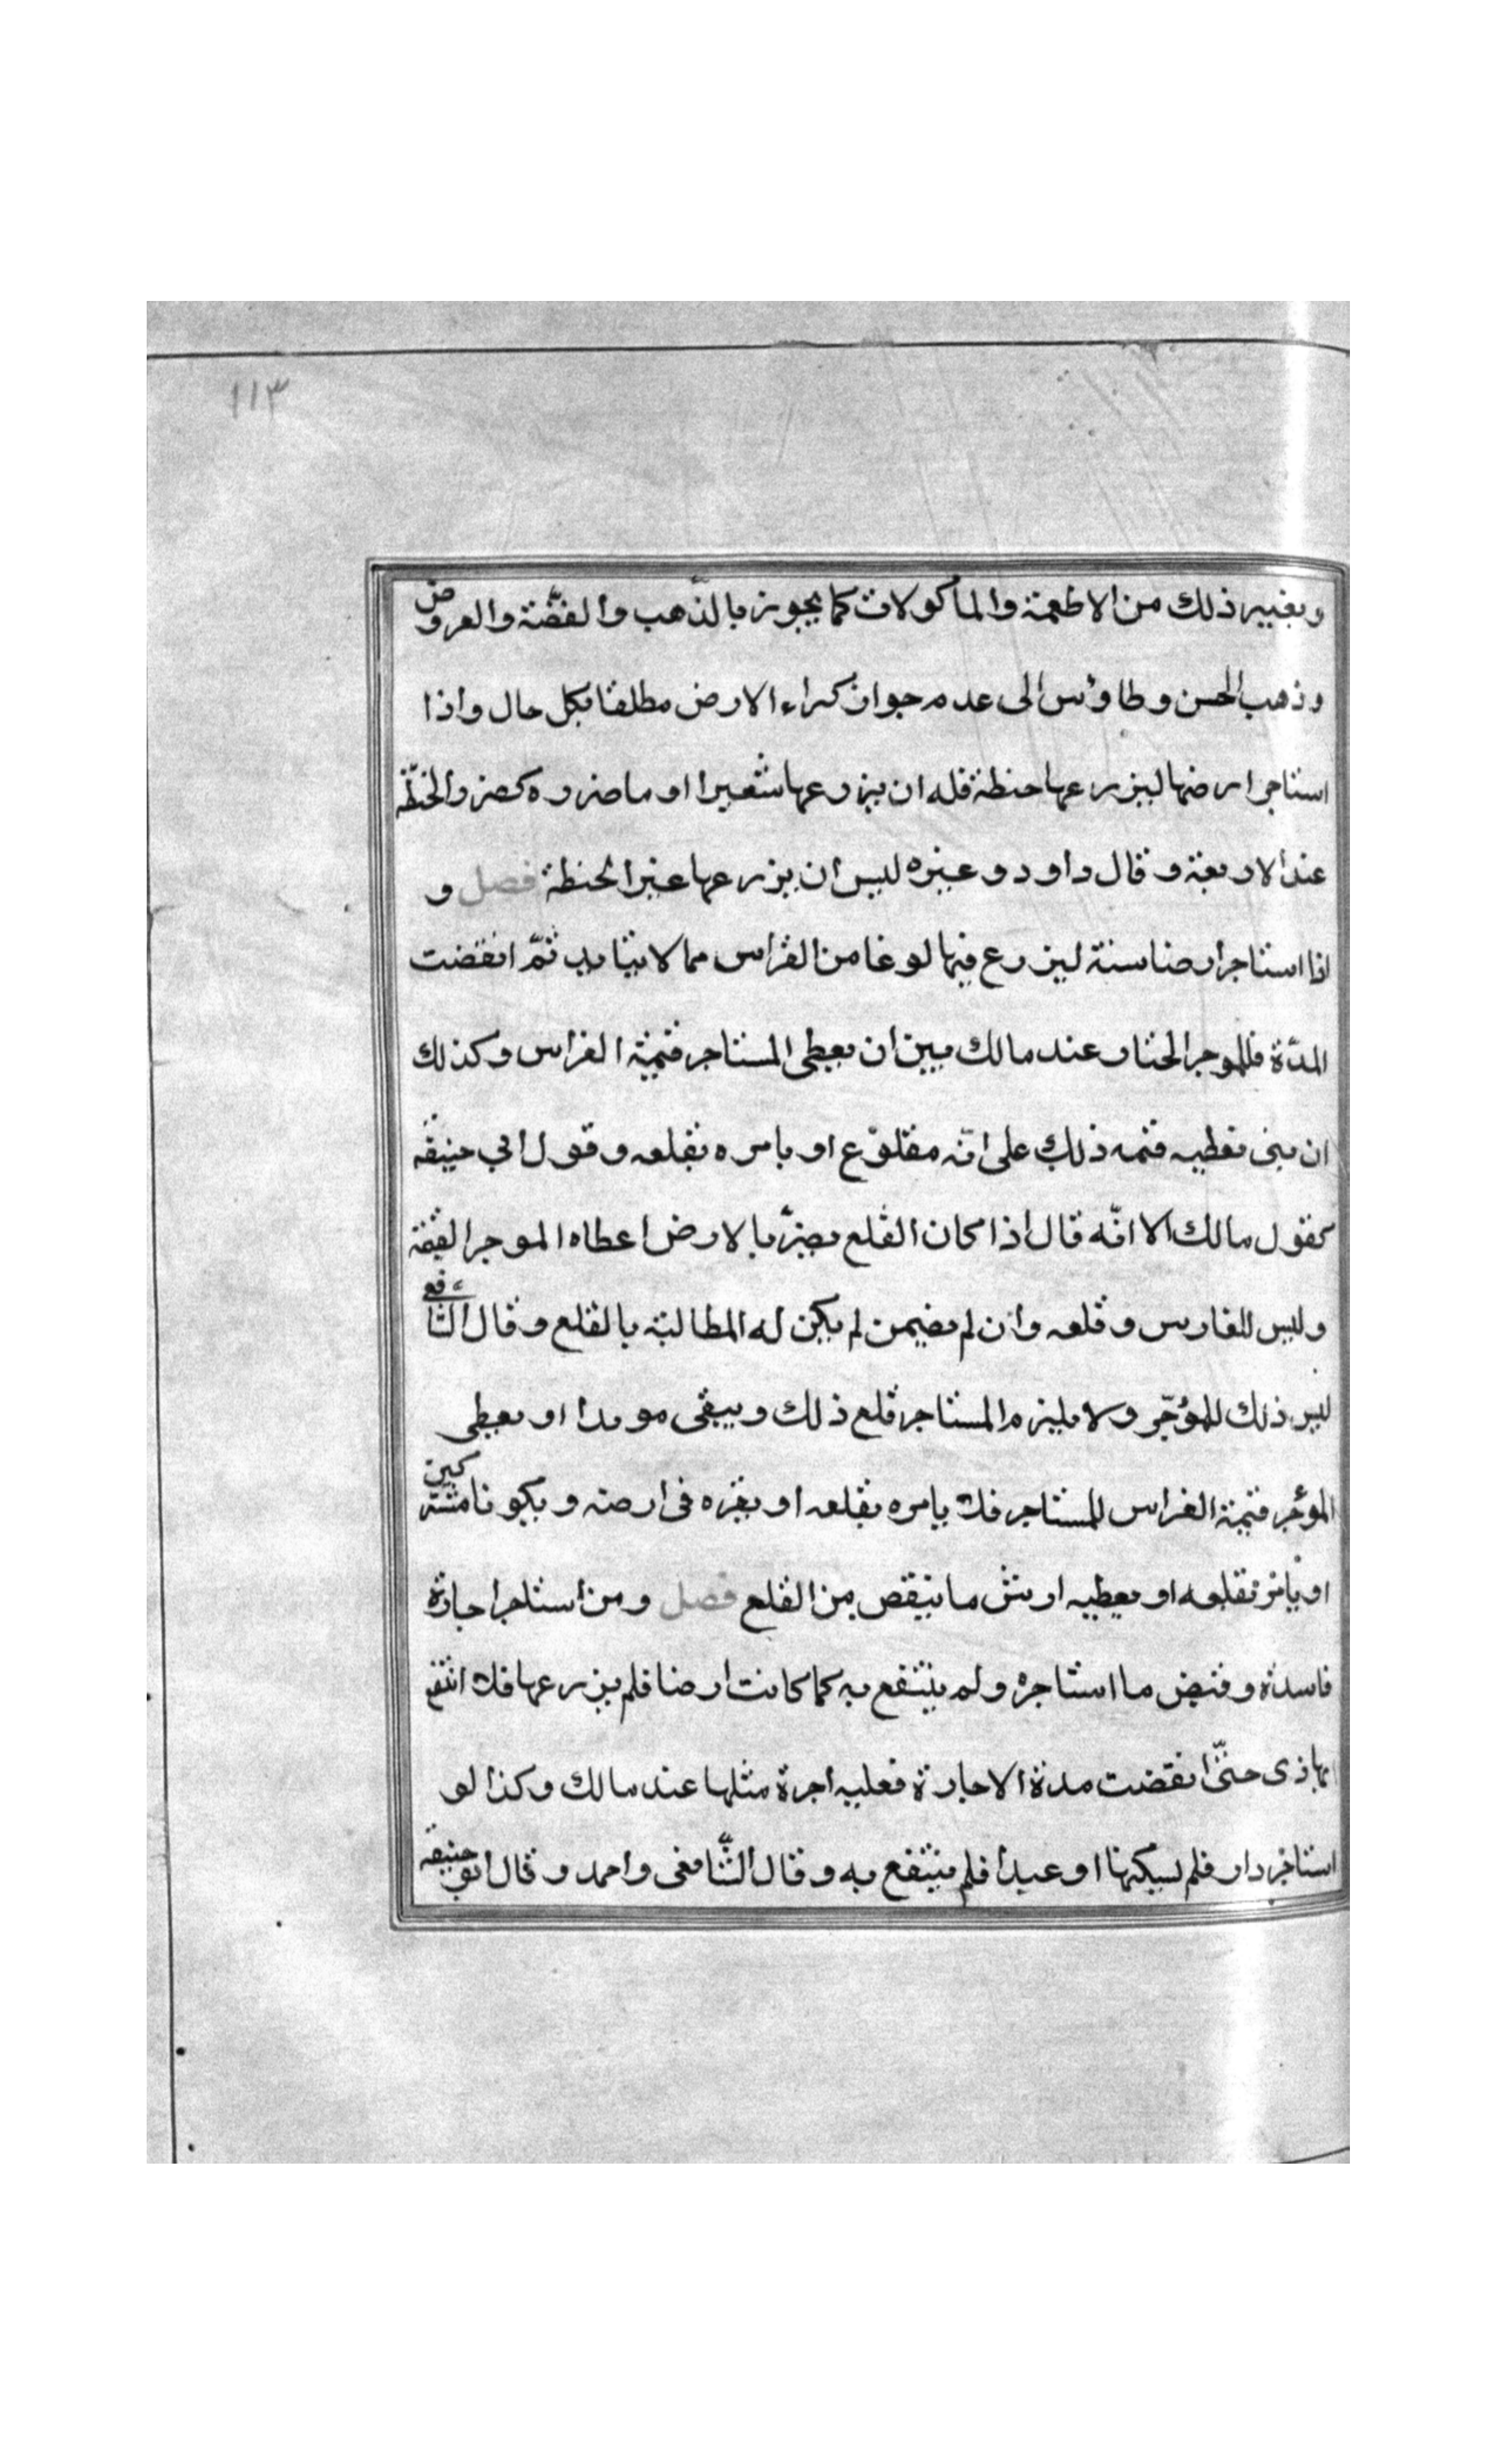 ١١٣
وبغير ذلك من الاطعمة والمأكولات كما يجوز بالذّهب والفضّة والعروض
وذهب الحسن وطاوس الى عدم جواز كراء الارض مطلقا بكل حال واذا
استاجر ارضها ليزرعها حنطة فله ان يزرعها شعيرا او ما ضروه كضرر الحنطة
عند الاربعة وقال داود وغيره ليس ان يزرعها غير الحنطة فصل و
اذا استاجر ارضا سنة ليزرع فيها نوعا من الغراس مما لا يتابد ثمّ انقضت
المدّة فللموجر الخيار عند مالك بين ان يعطى المستاجر قيمة الغراس وكذلك
ان بنى يعطيه قيمه ذلك على انّه مقلوع او يامره بقلعه وقول ابي حنيفه
كقول مالك الا انّه قال اذا كان القلع يضرّ بالارض اعطاه الموجر القيمة
وليس للغارس وقلعه وان لم يضيمن لم يكن له المطالبة بالقلع وقال الشافعي
ليس ذلك للمؤجّر ولا يليزم المستاجر قلع ذلك ويبقى موبدا او يعطى
المؤجر قيمة الغراس للمستاجر فلا يامره بقلعه او يقره فى ارضه ويكونا مشتركين
او يامر بقلعه او يعطيه ارش ما ينقص من القلع فصل ومن استاجر اجارة
فاسدة وقبض ما استاجره ولم ينتفع به كما كانت ارضا فلم يزرعها فلا انتفع
بها ذى حتّى انقضت مدة الاجارة فعليه اجرة مثلها عند مالك وكذا لو
استاجر دار فلم يسكنها او عبدا فلم ينتفع به وقال الشّافعى واحمد وقال ابو حنيفه